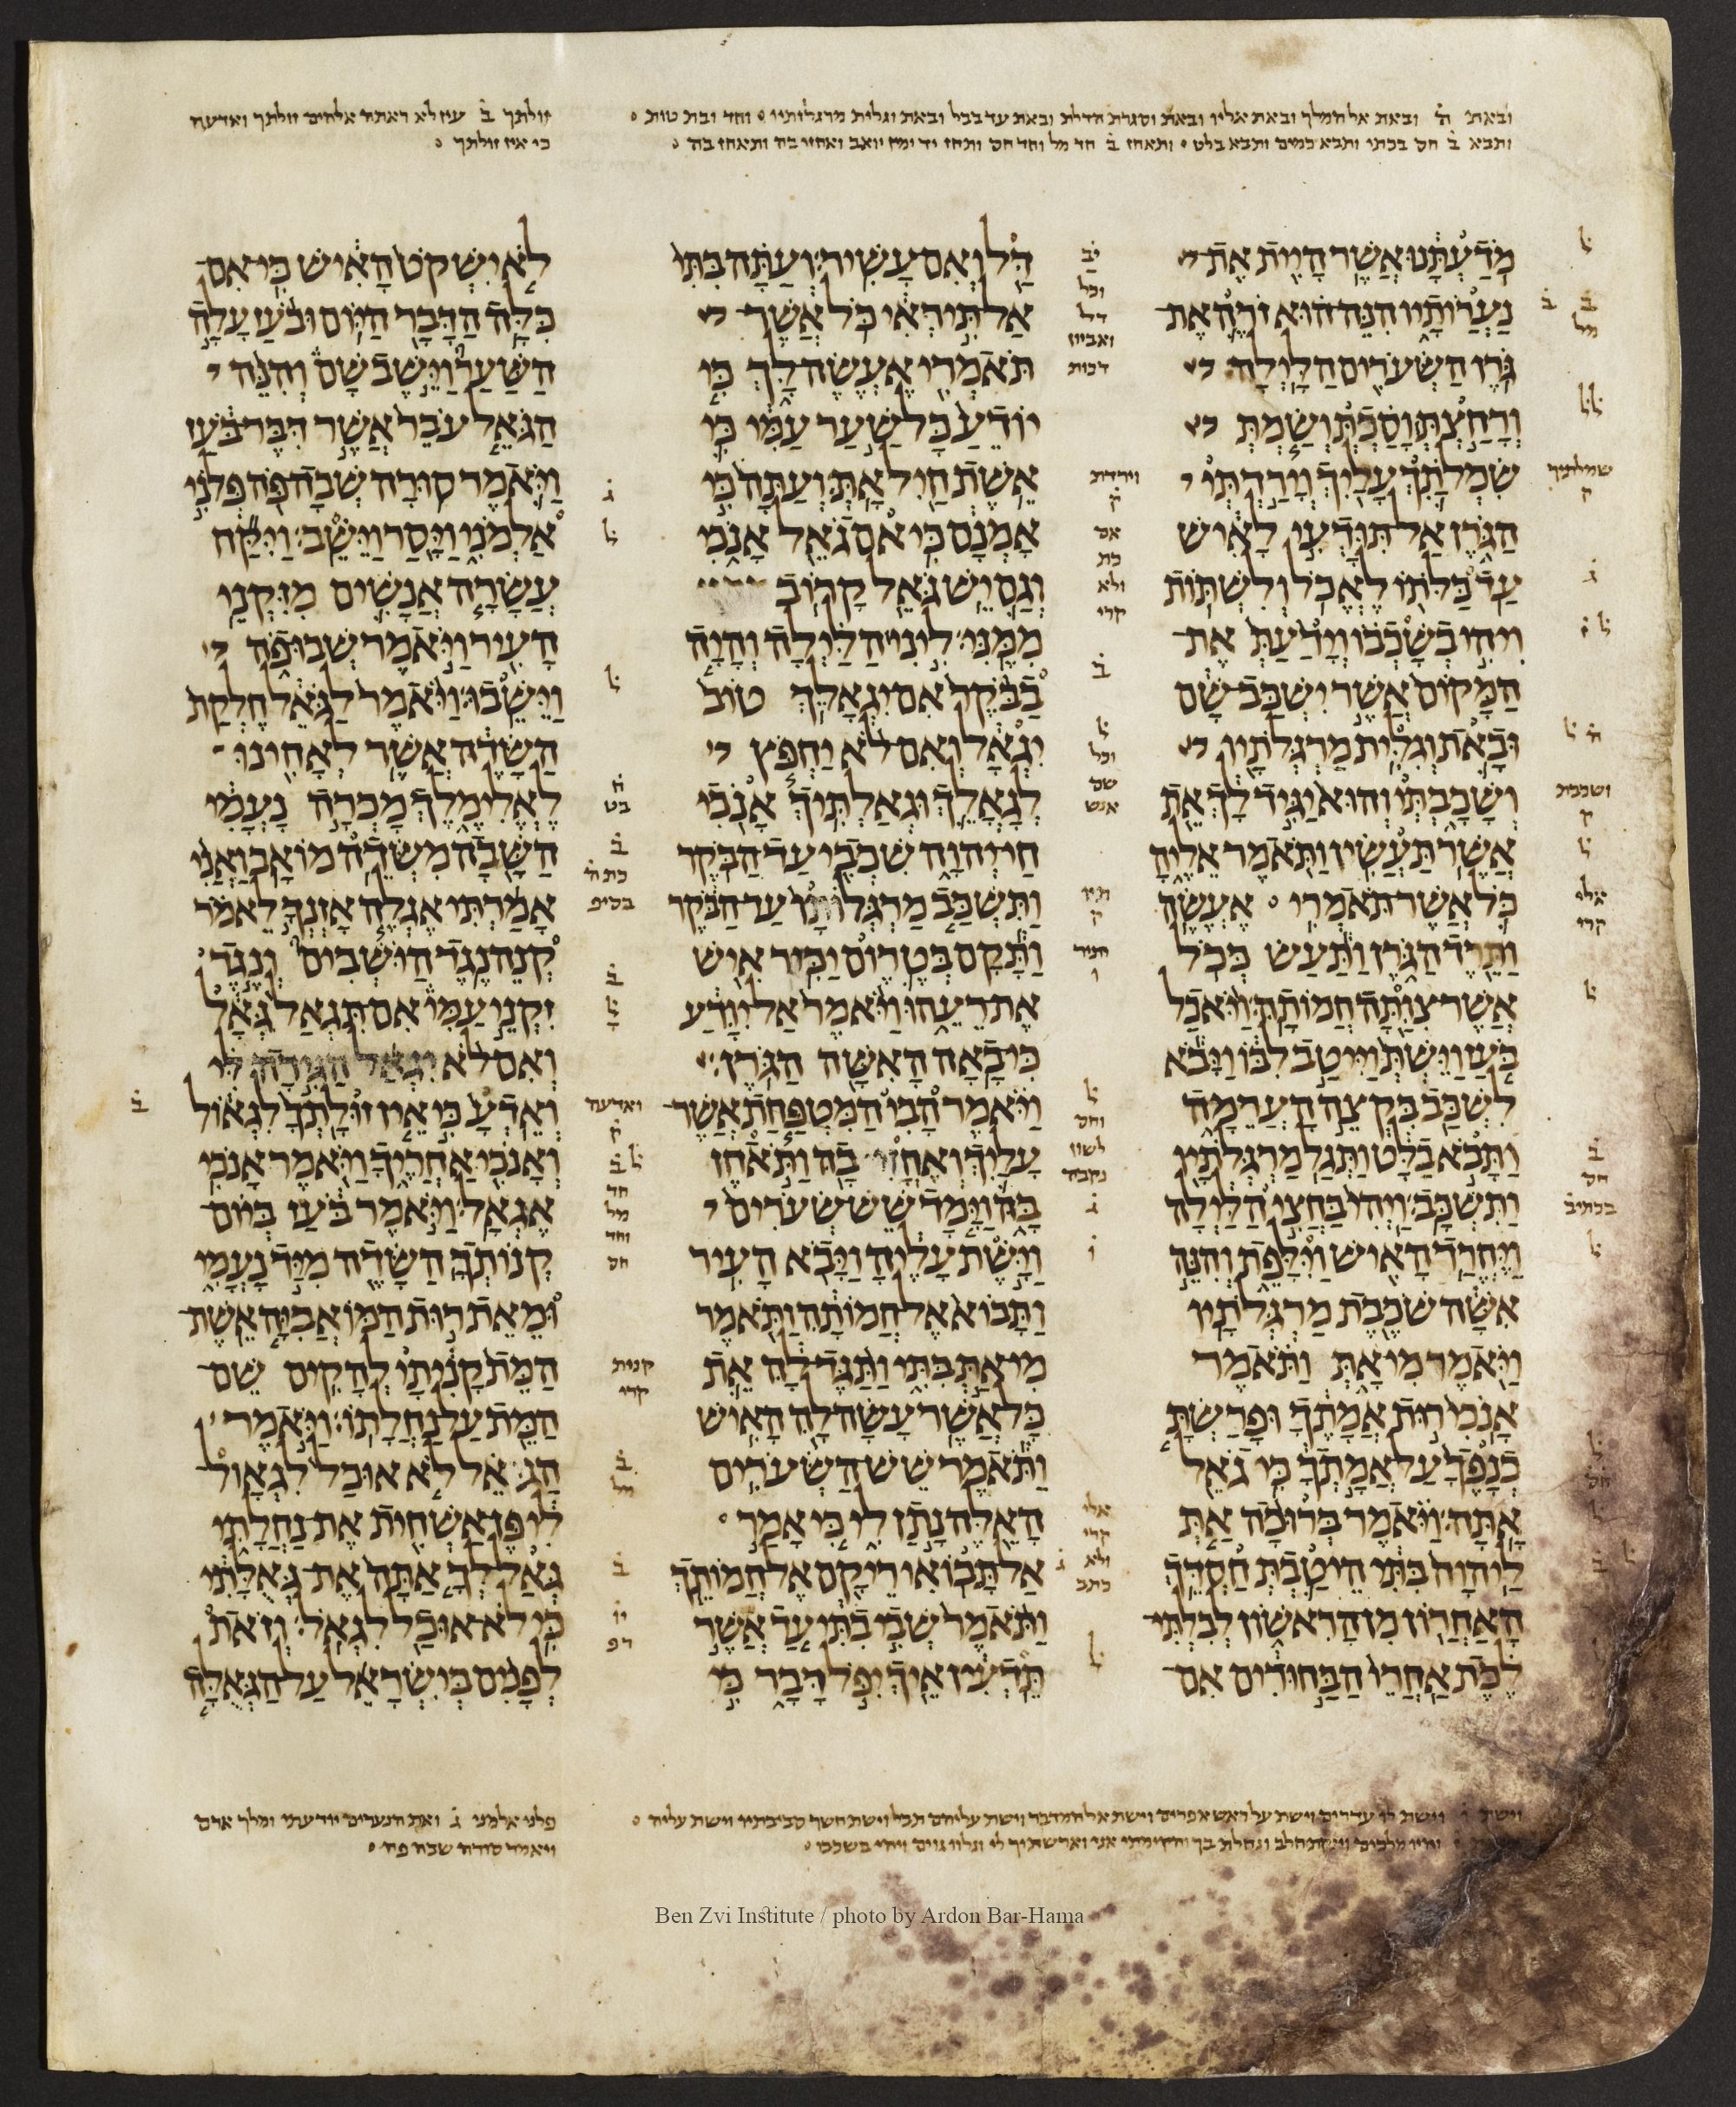 ובאת ה̇ ובאת אל המלך ובאת אליו ובאת וסגרת הדלת ובאת עד בבל ובאת וגלית מרגלותיו וחד ובת טות
ותבא ב̇ חס בכתו ותבא כמים ותבא בלט ותאחז ב̇ חד מל וחד חס ותחז יד ימין יואב ואחזי בה ותאחז בה
זולתך ב̇ עין לא ראתה אלהים זולתך ואדעה
כי אין זולתך
מֹדַעְתָּנוּ אֲשֶׁר הָיִית אֶת־
נַעֲרוֹתָיו הִנֵּה הוּא זֹרֶה אֶת
גֹּרֶן הַשְּׂעֹרִים הַלָּיְלָה
וְרָחַצְתְּ וָסַכְתְּ וְשַׂמְתְּ
שִׂמְלֹתַךְ עָלַיִךְ וְיָרַדְתְּי
הַגֹּרֶן אַל תִּוָּדְעִי לָאִישׁ
עַד כַּלֹּתוֹ לֶאֱכֹל וְלִשְׁתּוֹת
וִיהִי בְשָׁכְבוֹ וְיָדַעַתְּ אֶת־
הַמָּקוֹם אֲשֶׁר יִשְׁכַּב שָׁם
וּבָאת וְגִלִּית מַרְגְּלֹתָיו
וְשָׁכָבְתְּי וְהוּא יַגִּיד לָךְ אֵת
אֲשֶׁר תַּעֲשִׂין וַתֹּאמֶר אֵלֶיהָ
כֹּל אֲשֶׁר תֹּאמְרִי אֶעֱשֶׂה
וַתֵּרֶד הַגֹּרֶן וַתַּעַשׂ כְּכֹל
אֲשֶׁר צִוַּתָּה חֲמוֹתָהּ וַיֹּאכַל
בֹּעַז וַיֵּשְׁתְּ וַיִּיטַב לִבּוֹ וַיָּבֹא
לִשְׁכַּב בִּקְצֵה הָעֲרֵמָה
וַתָּבֹא בַלָּט וַתְּגַל מַרְגְּלֹתָיו
וַתִּשְׁכָּב וַיְהִי בַּחֲצִי הַלַּיְלָה
וַיֶּחֱרַד הָאִישׁ וַיִּלָּפֵת וְהִנֵּה
אִשָּׁה שֹׁכֶבֶת מַרְגְּלֹתָיו
וַיֹּאמֶר מִי אָתְּ וַתֹּאמֶר
אָנֹכִי רוּת אֲמָתֶךָ וּפָרַשְׂתָּ
כְנָפֶךָ עַל אֲמָתְךָ כִּי גֹאֵל
אָתָּה וַיֹּאמֶר בְּרוּכָה אַתְּ
לַיהוָה בִּתִּי הֵיטַבְתְּ חַסְדֵּךְ
הָאַחֲרוֹן מִן הָרִאשׁוֹן לְבִלְתִּי
לֶכֶת אַחֲרֵי הַבַּחוּרִים אִם־
דַּל וְאִם עָשִׁיר וְעַתָּה בִּתִּי
אַל תִּירְאִי כֹּל אֲשֶׁר
תֹּאמְרִי אֶעֱשֶׂה לָּךְ כִּי
יוֹדֵעַ כָּל שַׁעַר עַמִּי כִּי
אֵשֶׁת חַיִל אָתְּ וְעַתָּה כִּי
אָמְנָם כִּי אם גֹאֵל אָנֹכִי
וְגַם יֵשׁ גֹּאֵל קָרוֹב
מִמֶּנִּי לִינִי הַלַּיְלָה וְהָיָה
בַבֹּקֶר אִם יִגְאָלֵךְ טוֹב
יִגְאָל וְאִם לֹא יַחְפֹּץ
לְגָאֳלֵךְ וּגְאַלְתִּיךְ אָנֹכִי
חַי יְהוָה שִׁכְבִי עַד הַבֹּקֶר
וַתִּשְׁכַּב מַרְגְּלוֹתָו עַד הַבֹּקֶר
וַתָּקָם בְּטֶרֶוֹם יַכִּיר אִישׁ
אֶת רֵעֵהוּ וַיֹּאמֶר אַל יִוָּדַע
כִּי בָאָה הָאִשָּׁה הַגֹּרֶן
וַיֹּאמֶר הָבִי הַמִּטְפַּחַת אֲשֶׁר־
עָלַיִךְ וְאֶחֳזִי בָהּ וַתֹּאחֶז
בָּהּ וַיָּמָד שֵׁשׁ שְׂעֹרִים
וַיָּשֶׁת עָלֶיהָ וַיָּבֹא הָעִיר
וַתָּבוֹא אֶל חֲמוֹתָהּ וַתֹּאמֶר
מִי אַתְּ בִּתִּי וַתַּגֶּד לָהּ אֵת
כָּל אֲשֶׁר עָשָׂה לָהּ הָאִישׁ
וַתֹּאמֶר שֵׁשׁ הַשְּׂעֹרִים
הָאֵלֶּה נָתַן לִי כִּי אָמַר
אַל תָּבוֹאִי רֵיקָם אֶל חֲמוֹתֵךְ
וַתֹּאמֶר שְׁבִי בִתִּי עַד אֲשֶׁר
תֵּדְעִין אֵיךְ יִפֹּל דָּבָר כִּי
לֹא יִשְׁקֹט הָאִישׁ כִּי אִם־
כִּלָּה הַדָּבָר הַיּוֹם וּבֹעַז עָלָה
הַשַּׁעַר וַיֵּשֶׁב שָׁם וְהִנֵּה
הַגֹּאֵל עֹבֵר אֲשֶׁר דִּבֶּר בֹּעַז
וַיֹּאמֶר סוּרָה שְׁבָה פֹּה פְּלֹנִי
אַלְמֹנִי וַיָּסַר וַיֵּשֵׁב וַיִּקַּח
עֲשָׂרָה אֲנָשִׁים מִזִּקְנֵי
הָעִיר וַיֹּאמֶר שְׁבוּ פֹה
וַיֵּשֵׁבוּ וַיֹּאמֶר לַגֹּאֵל חֶלְקַת
הַשָּׂדֶה אֲשֶׁר לְאָחִינוּ
לֶאֱלִימֶלֶךְ מָכְרָה נָעֳמִי
הַשָּׁבָה מִשְּׂדֵה מוֹאָב וַאֲנִי
אָמַרְתִּי אֶגְלֶה אָזְנְךָ לֵאמֹר
קְנֵה נֶגֶד הַיּוֹשְׁבִים וְנֶגֶד
זִקְנֵי עַמִּי אִם תִּגְאַל גְּאָל
וְאִם לֹא יִגְאַל הַגִּידָה לִּי
וְאֵדְעָ כִּי אֵין זוּלָתְךָ לִגְאוֹל
וְאָנֹכִי אַחֲרֶיךָ וַיֹּאמֶר אָנֹכִי
אֶגְאָל וַיֹּאמֶר בֹּעַז בְּיוֹם
קְנוֹתְךָ הַשָּׂדֶה מִיַּד נָעֳמִי
וּמֵאֵת רוּת הַמּוֹאֲבִיָּה אֵשֶׁת
הַמֵּת קָנִיתָי לְהָקִים שֵׁם
הַמֵּת עַל נַחֲלָתוֹ וַיֹּאמֶר
הַגֹּאֵל לֹא אוּכַל לִגְאָול
לִי פֶּן אַשְׁחִית אֶת נַחֲלָתִי
גְּאַל לְךָ אַתָּה אֶת גְּאֻלָּתִי
כִּי לֹא אוּכַל לִגְאֹל וְזֹאת
לְפָנִים בְּיִשְׂרָאֵל עַל הַגְּאֻלָּה
וישת לו עדרים וישת על ראש אפרים וישת אל המדבר וישת עליהם תבל וישת חשך סביבתיו וישת עליה
פלני אלמני ג̇ ואת הנערים יודעתי ומלך ארם
ויאמר סורה שבה פה
Ben Zvi Institute / photo by Ardon Bar-Hama